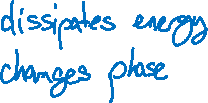 dissipates energy
changes phase